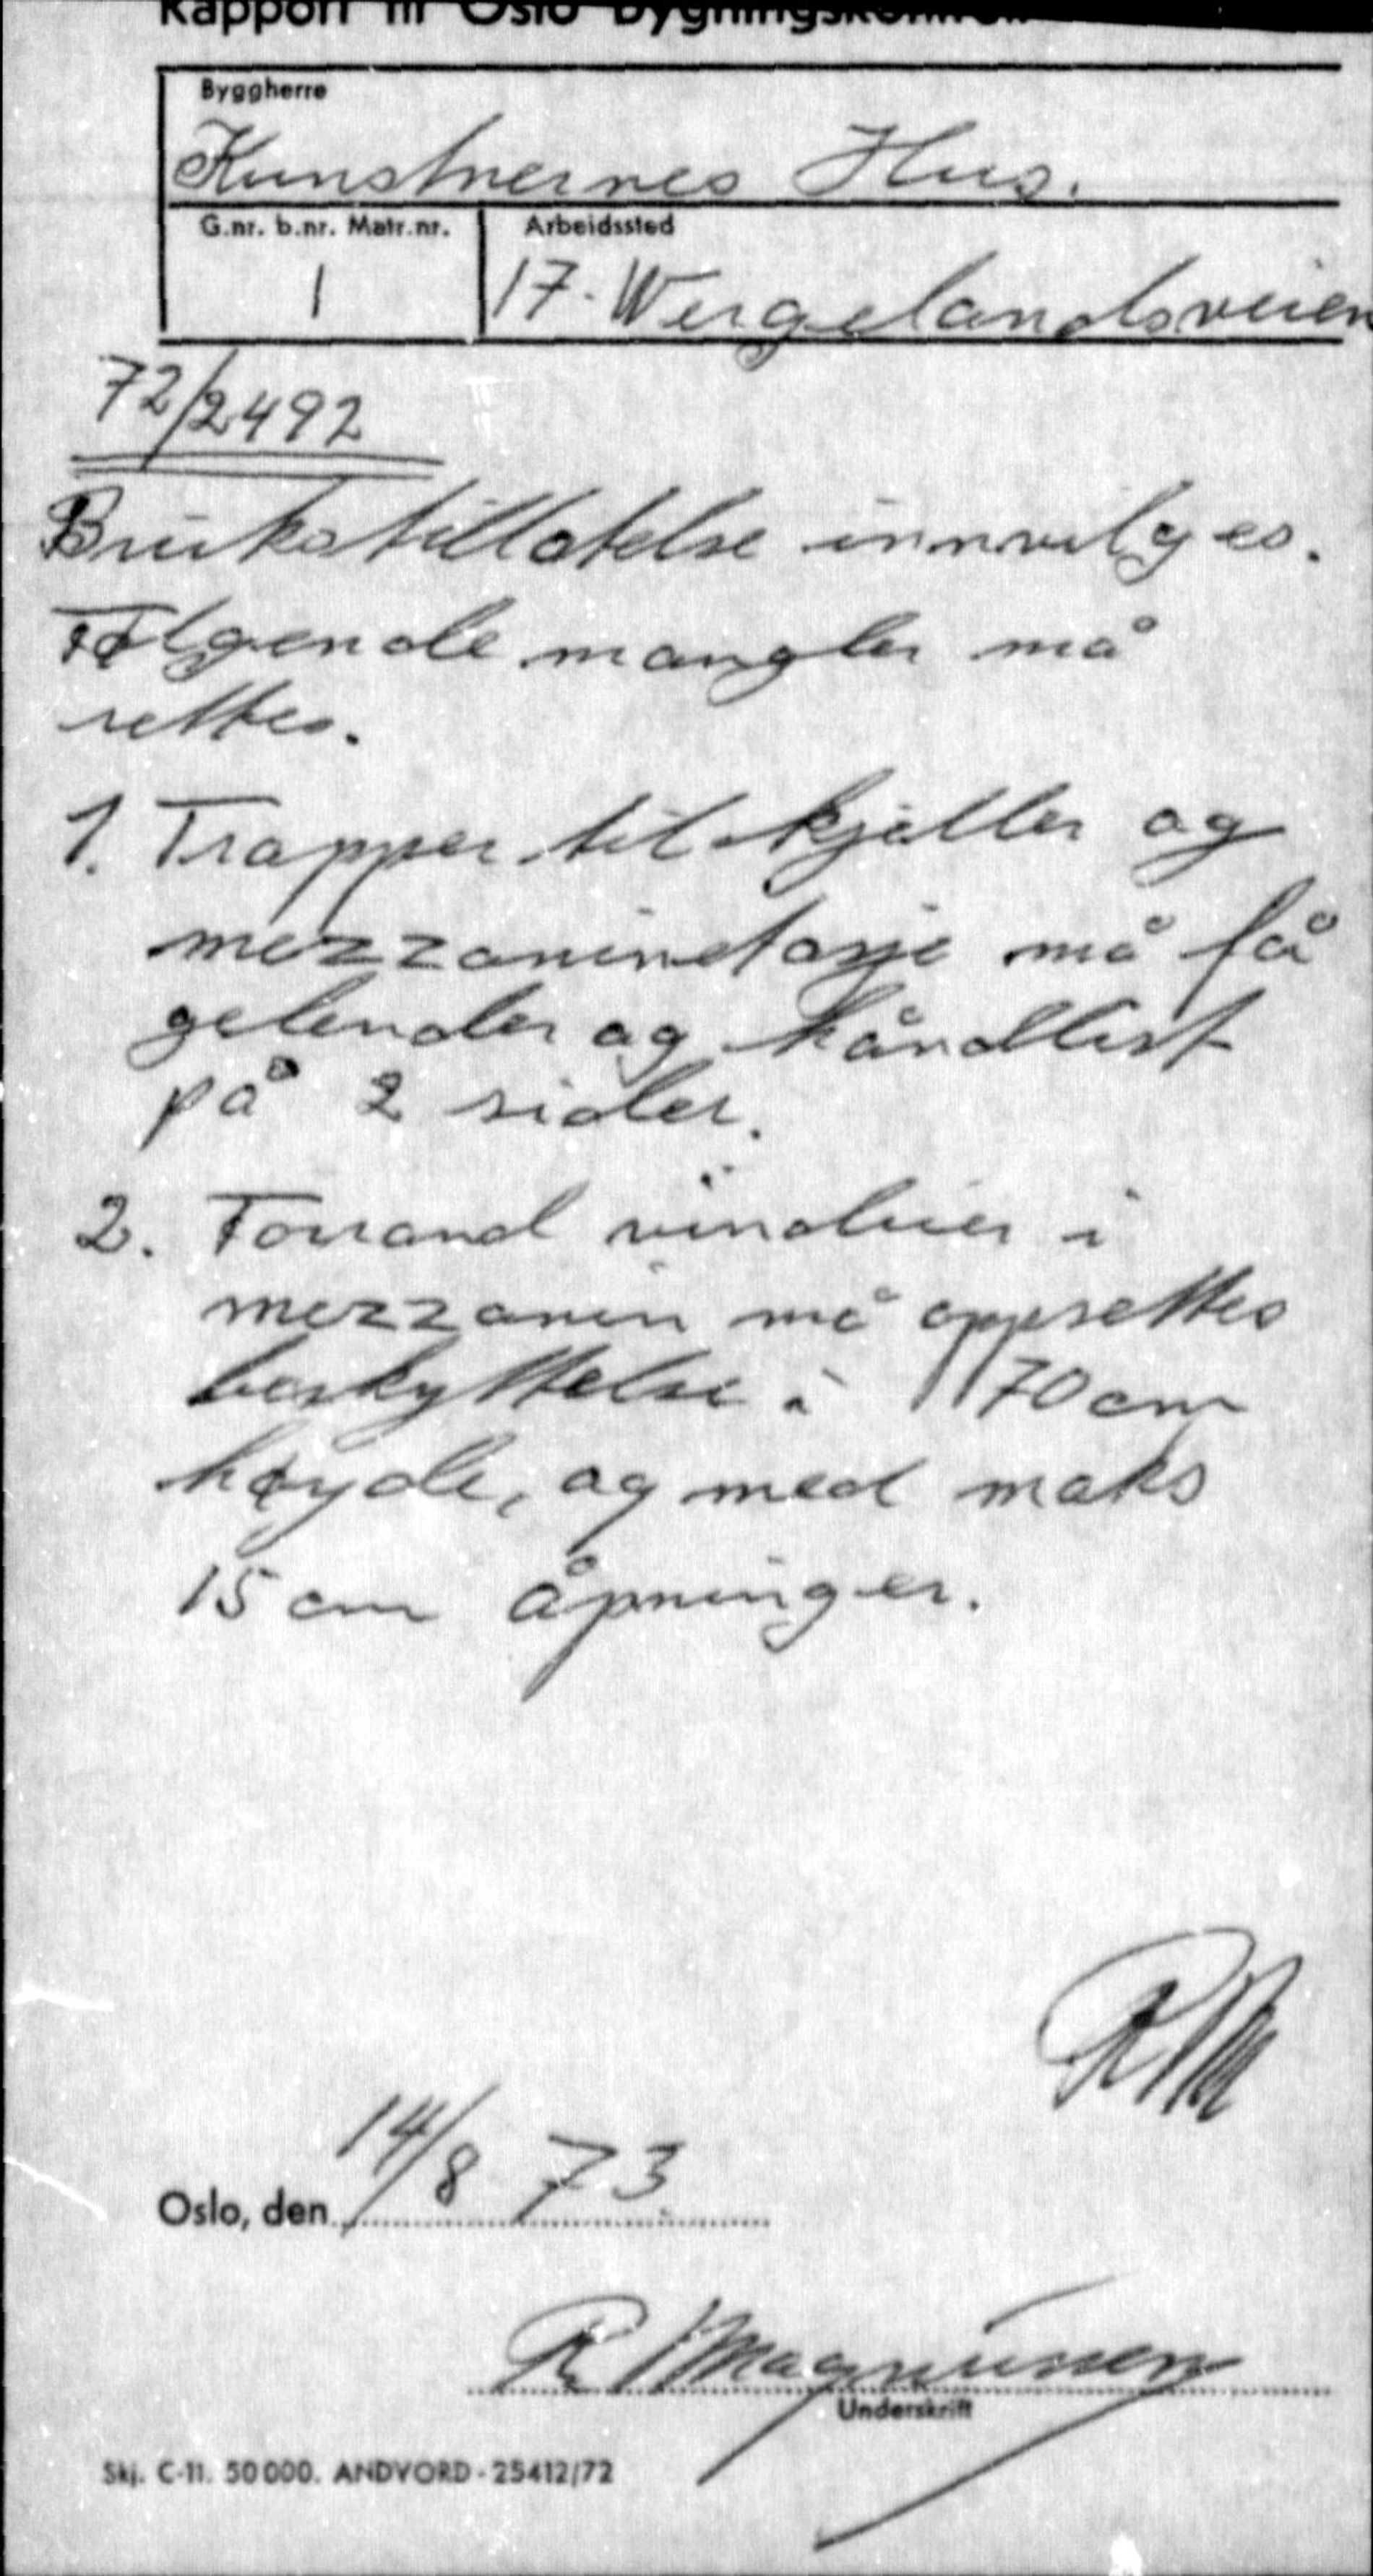 Rapport til Oslo bygningskontroll
Byggherre
Kunstnernes Hus.
G.nr. b.nr. Matr.nr. Arbeidssted
1 17. Wergelandsveien
72/2492
Brukstillatelse innvilges.
Følgende mangler må
rettes.
1. Trapper til kjeller og
mezzaninetasje må få
gelender og håndlist
på 2 sider.
2. Forrand vinduer i
mezzanin må oppsettes
beskyttelse i 70 cm
høyde, og med maks
15 cm åpninger.
RM
Oslo, den 14/8 73.
R Magnussen
Underskrift
Skj. C-11. 50000. ANDVORD-25412/72